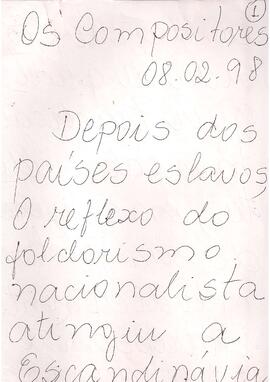 ①
Os Compositores
08.02.98
Depois dos
países eslavos,
O reflexo do
folclorismo
nacionalista
atingiu a
Escandinávia